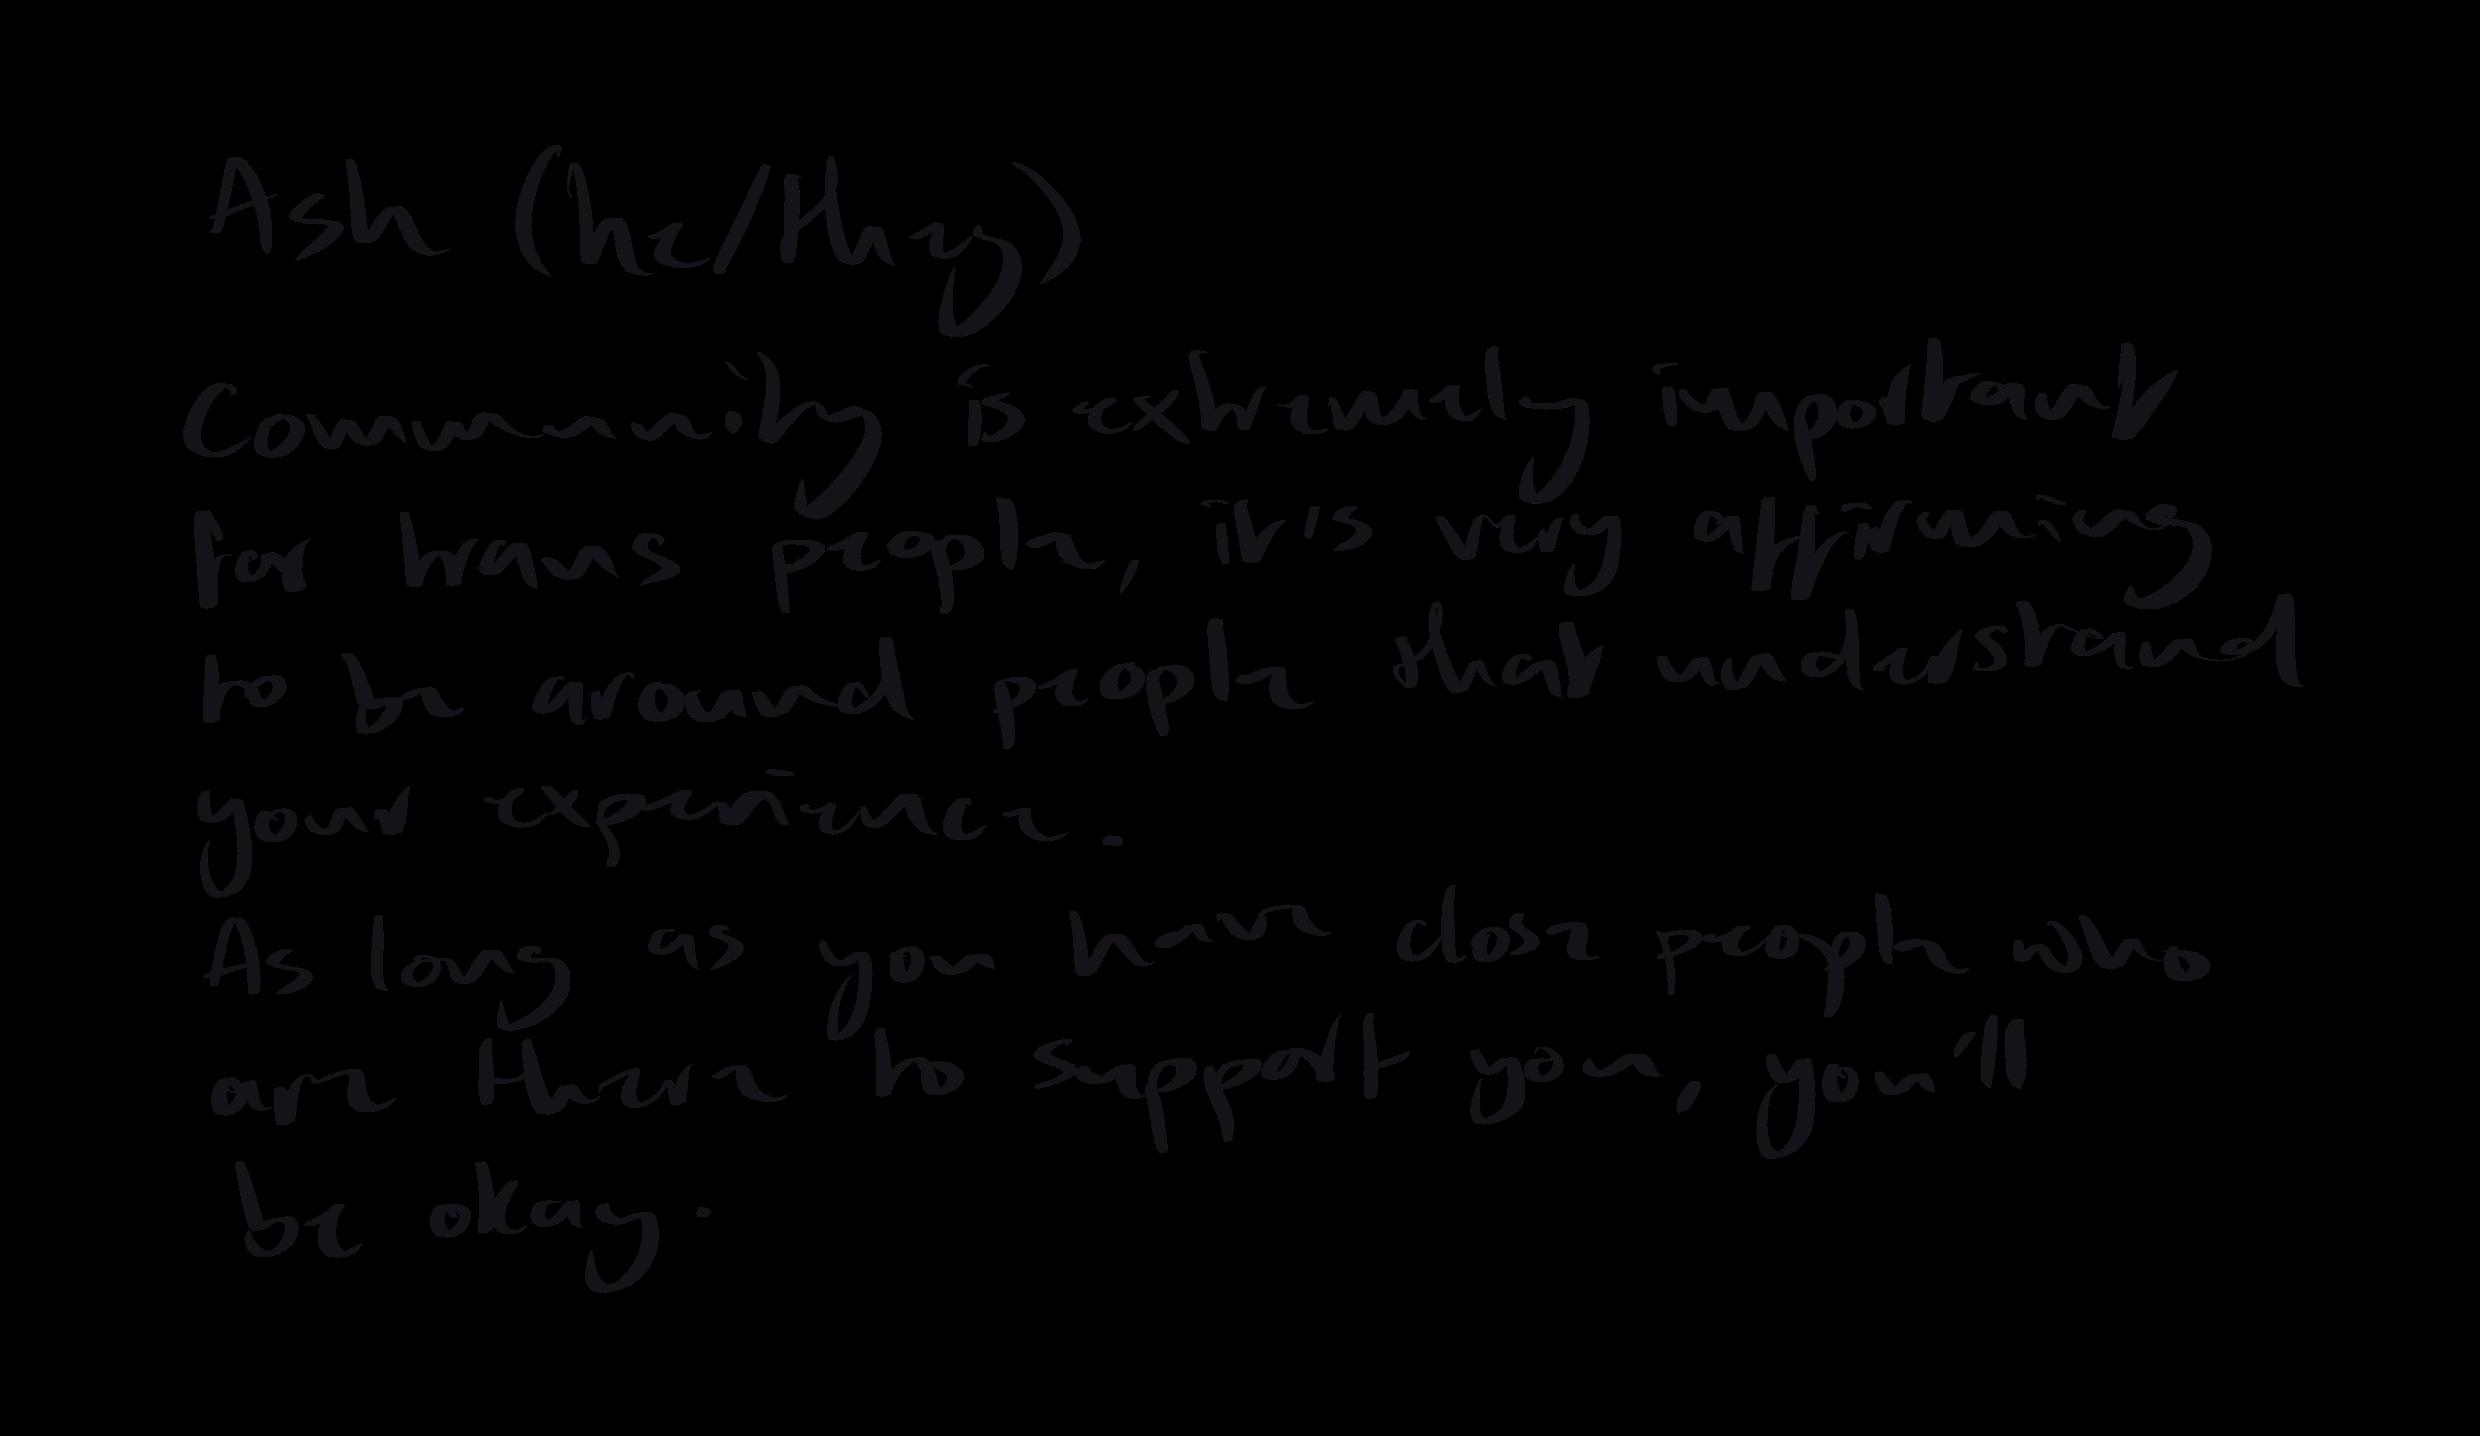 Ash (he/they)
Community is extremely important
for trans people, it's very affirming
to be around people that understand
your experience.
As long as you have close people who
are there to support you, you'll
be okay.